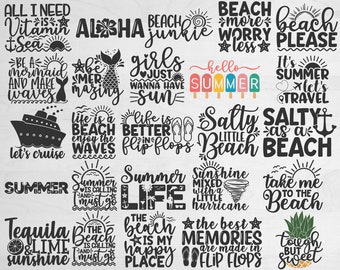 ALL I NEED
is Vitamin
Sea
ALOHA
BEACH
junkie
BEACH
more
WORRY
less
beach
PLEASE
BE A
mermaid
AND MAKE
waves
mer
mazing
girls
just
WANNA HAVE
sun
hello
SUMMER
It's
SUMMER
let's
TRAVEL
let's cruise
life is a
BEACH
enjoy the
WAVES
life is
BETTER
in
flip flops
Salty
LITTLE
Beach
SALTY
as a
BEACH
SUMMER
Summer
LIFE
sunshine
MIXED
WITH A
little
hurricane
take me
TO THE
Beach
Tequila
LIME
sunshine
The
BEACH
IS CALLING
and i
must go
THE
beach
IS MY
HAPPY
PLACE!
the best
MEMORIES
are made in
FLIP FLOPS
Tough
BUT
Sweet